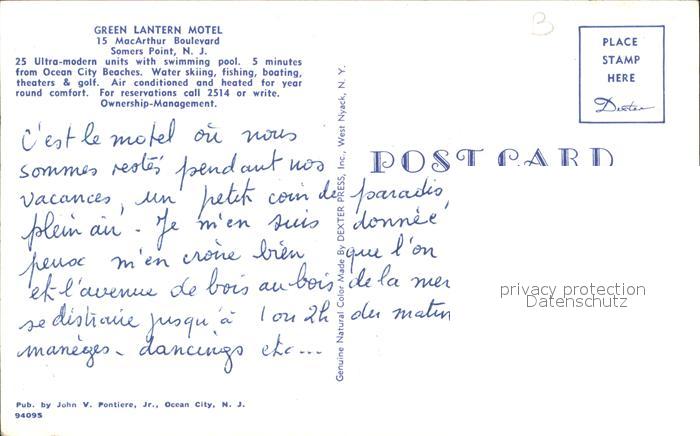 GREEN LANTERN MOTEL
15 MacArthur Boulevard
Somers Point, N. J.
25 Ultra-modern units with swimming pool. 5 minutes
from Ocean City Beaches. Water skiing, fishing, boating,
theaters & golf. Air conditioned and heated for year
round comfort. For reservations call 2514 or write.
Ownership-Management.
C'est le motel où nous
sommes restés pendant nos
vacances, un petit coin de paradis
plein air. Je m'en suis donnée
peux m'en croire bien que l'on
et l'avenue de bois au bois de la mer
se distraire jusqu'à 1 ou 2h du matin
manèges. dancings etc...
Pub. by John V. Pontiere, Jr., Ocean City, N. J.
94095
Genuine Natural Color Made By DEXTER PRESS, Inc., West Nyack, N. Y.
3
PLACE
STAMP
HERE
Dexter
POST CARD
privacy protection
Datenschutz